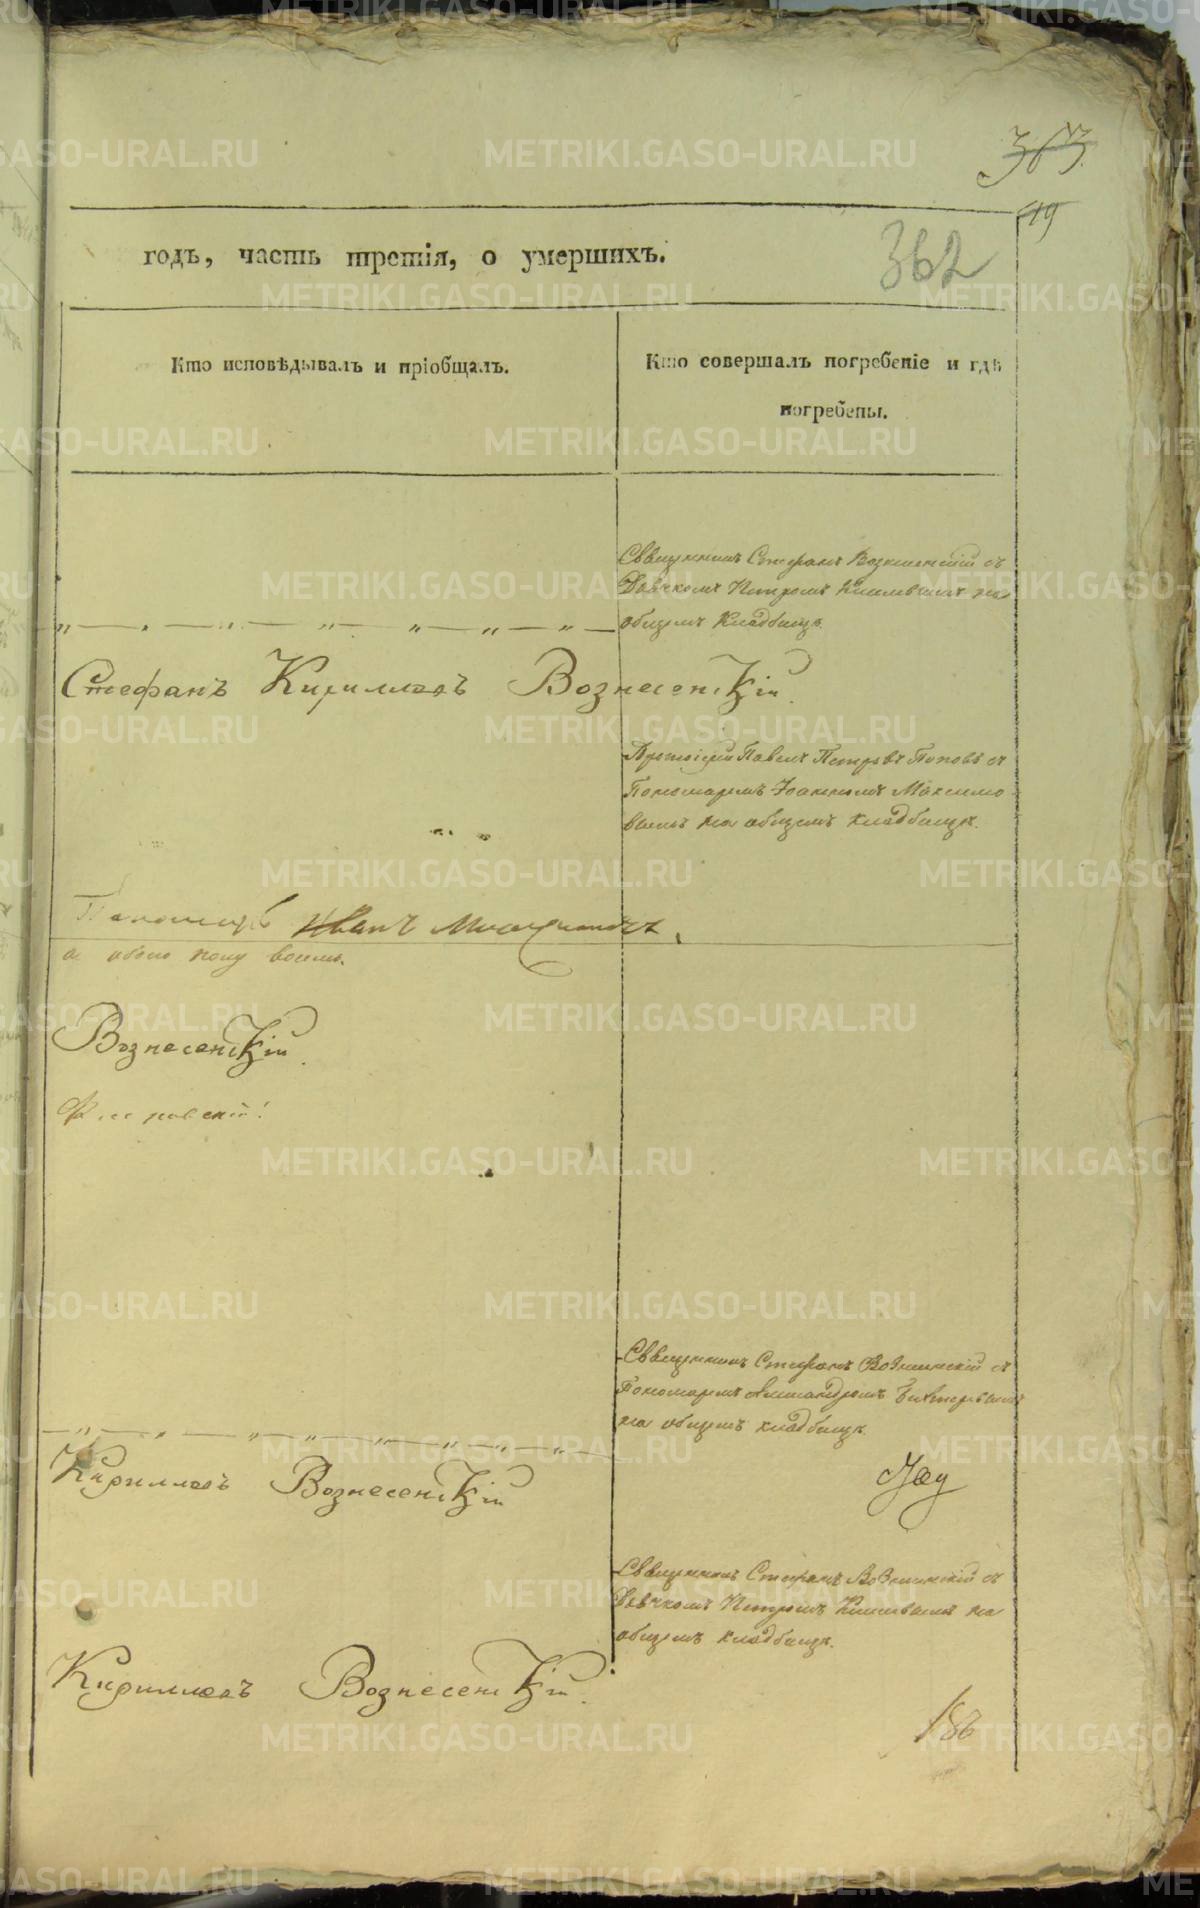 363.
19
годъ, часть третія, о умершихъ.
362
Кто исповѣдывалъ и пріобщалъ.
Кто совершалъ погребеніе и гдѣ
погребены.
Священникъ Стефанъ Вознесенскій съ
Дьячкомъ Петромъ на
общемъ кладбищѣ.
Стефанъ Кирилловъ Вознесенскій.
Протоіерей Павелъ Петровъ Поповъ съ
Пономаремъ Іоанномъ Максимо-
вымъ на общемъ кладбищѣ.
Пономарь Иванъ
а обоего полу восемь.
Вознесенскій.
Священникъ Стефанъ Вознесенскій съ
Пономаремъ Александромъ
на общемъ кладбищѣ.
Кирилловъ Вознесенскій
Священникъ Стефанъ Вознесенскій съ
Дьячкомъ Петромъ на
общемъ кладбищѣ.
Кирилловъ Вознесенскій.
METRIKI.GASO-URAL.RU